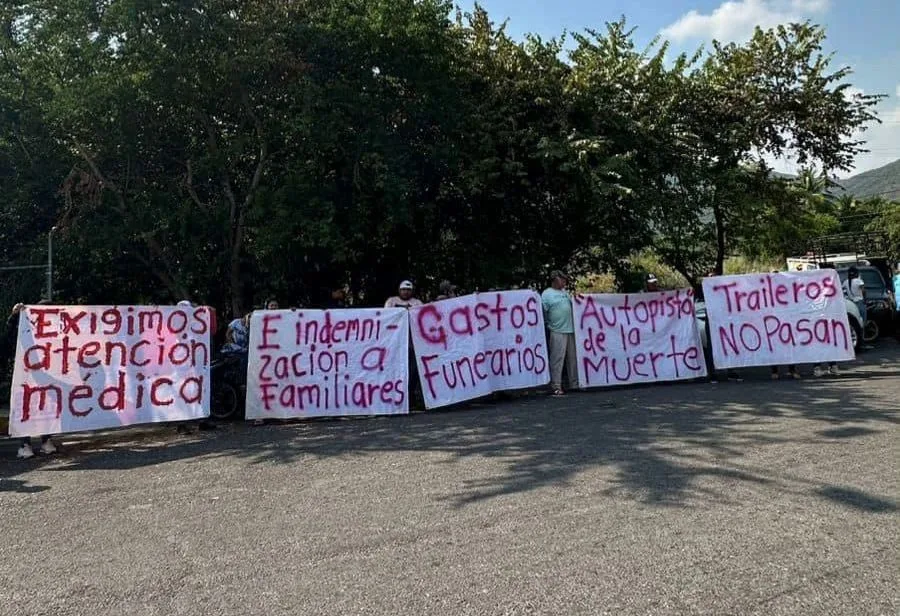 Exigimos
atención
médica
E indemni-
zación a
Familiares
Gastos
Funerarios
Autopista
de la
Muerte
Traileros
NO Pasan